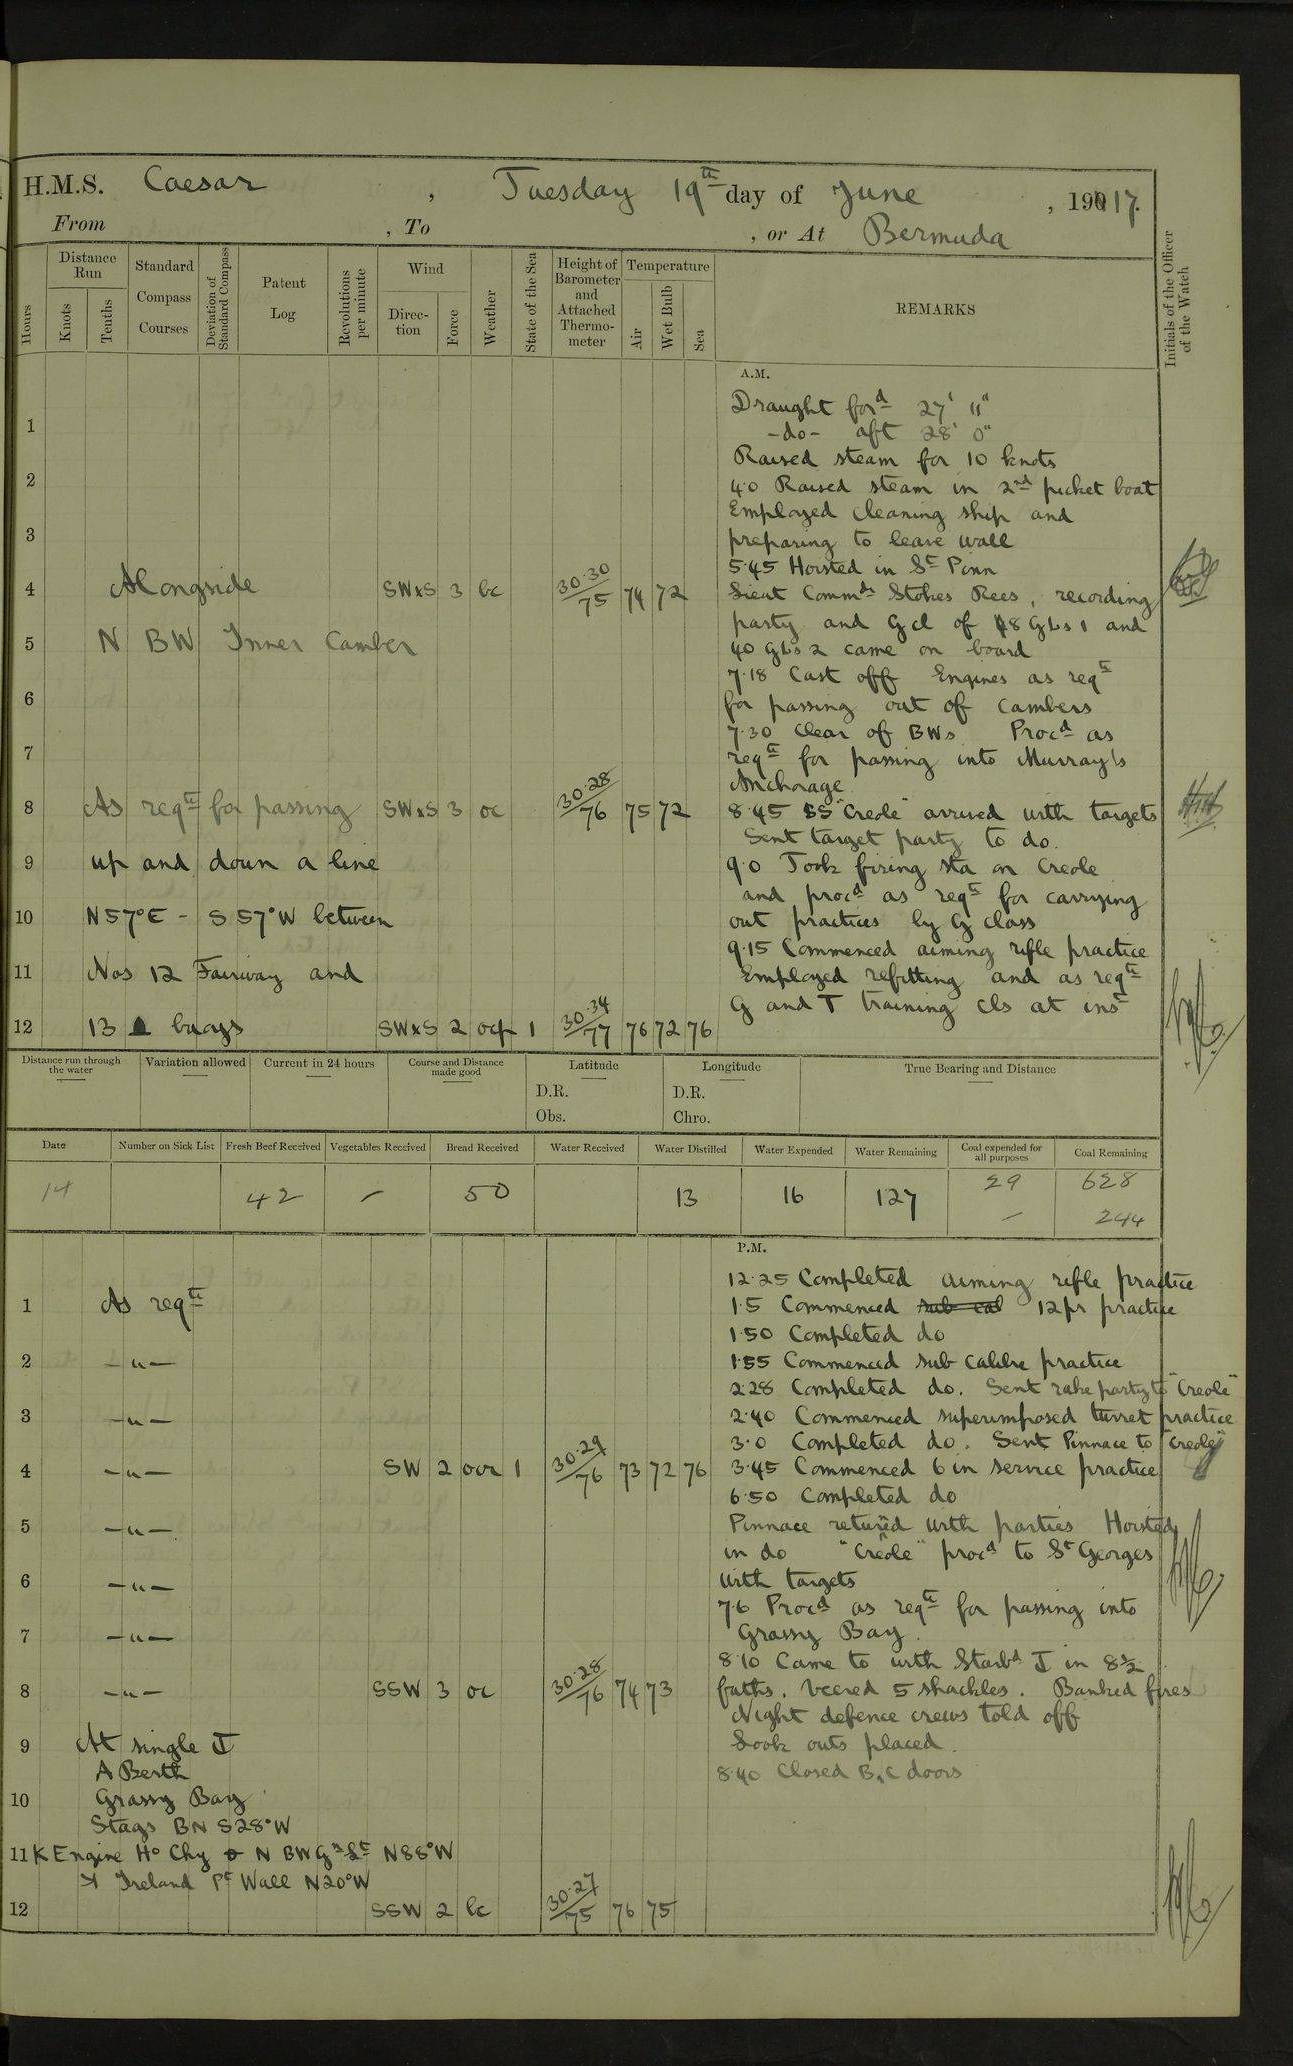 H.M.S. Caesar , Tuesday 19th day of June , 1917.
From , To , or At Bermuda
Hours
Distance Run
Knots
Tenths
Standard Compass Courses
Deviation of Standard Compass
Patent Log
Revolutions per minute
Wind
Direction
Force
Weather
State of the Sea
Height of Barometer and Attached Thermometer
Temperature
Air
Wet Bulb
Sea
REMARKS
Initials of the Officer of the Watch
A.M.
Draught ford 27' 11"
1
-do- aft 28' 0"
Raised steam for 10 knots
2
4.0 Raised steam in 2nd picket boat
Employed cleaning ship and
3
preparing to leave wall
5.45 Hoisted in St Pinn
4 Alongside SWxS 3 bc 30.30/75 74 72
Lieut Commdr Stokes Rees, recording
party and G cl of 48 GLs 1 and
5 N BW Inner Camber
40 GLs 2 came on board
7.18 Cast off Engines as reqte
6
for passing out of cambers
7.30 Clear of BWs Procd as
7
reqte for passing into Murray's
Anchorage
8 As reqte for passing SWxS 3 oc 30.28/76 75 72
8.45 SS "Creole" arrived with targets
Sent target party to do.
9 up and down a line
9.0 Took firing sta on Creole
and procd as reqte for carrying
10 N57°E - S57°W between
out practices by G class
9.15 Commenced aiming rifle practice
11 Nos 12 Fairway and
Employed refitting and as reqte
G and T training cls at inst
12 13 buoys SWxS 2 ocp 1 30.34/77 76 72 76
Distance run through the water
Variation allowed
Current in 24 hours
Course and Distance made good
Latitude
D.R.
Obs.
Longitude
D.R.
Chro.
True Bearing and Distance
Date
Number on Sick List
Fresh Beef Received
Vegetables Received
Bread Received
Water Received
Water Distilled
Water Expended
Water Remaining
Coal expended for all purposes
Coal Remaining
14 42 - 50 13 16 127 29 628
- 244
P.M.
12.25 Completed aiming rifle practice
1 As reqte
1.5 Commenced sub cal 12pr practice
1.50 Completed do
2 -"-
1.55 Commenced sub calibre practice
2.28 Completed do. Sent rake party to "Creole"
3 -"-
2.40 Commenced superimposed turret practice
3.0 Completed do. Sent Pinnace to "Creole"
4 -"- SW 2 ocr 1 30.29/76 73 72 76
3.45 Commenced 6 in service practice
6.50 Completed do
5 -"-
Pinnace returned with parties Hoisted
in do "Creole" procd to St Georges
6 -"-
with targets
7.6 Procd as reqte for passing into
7 -"-
Grassy Bay.
8.10 Came to with Starbd ⚓ in 8½
8 -"- SSW 3 oc 30.28/76 74 73
faths. Veered 5 shackles. Banked fires
Night defence crews told off
9 At single ⚓
Look outs placed.
A Berth
8.40 Closed B.C doors
10 Grassy Bay
Stags BN S28°W
11 K Engine Ho Chy N BW Gn Lt N88°W
Ireland Pt Wall N20°W
12 SSW 2 bc 30.27/75 76 75